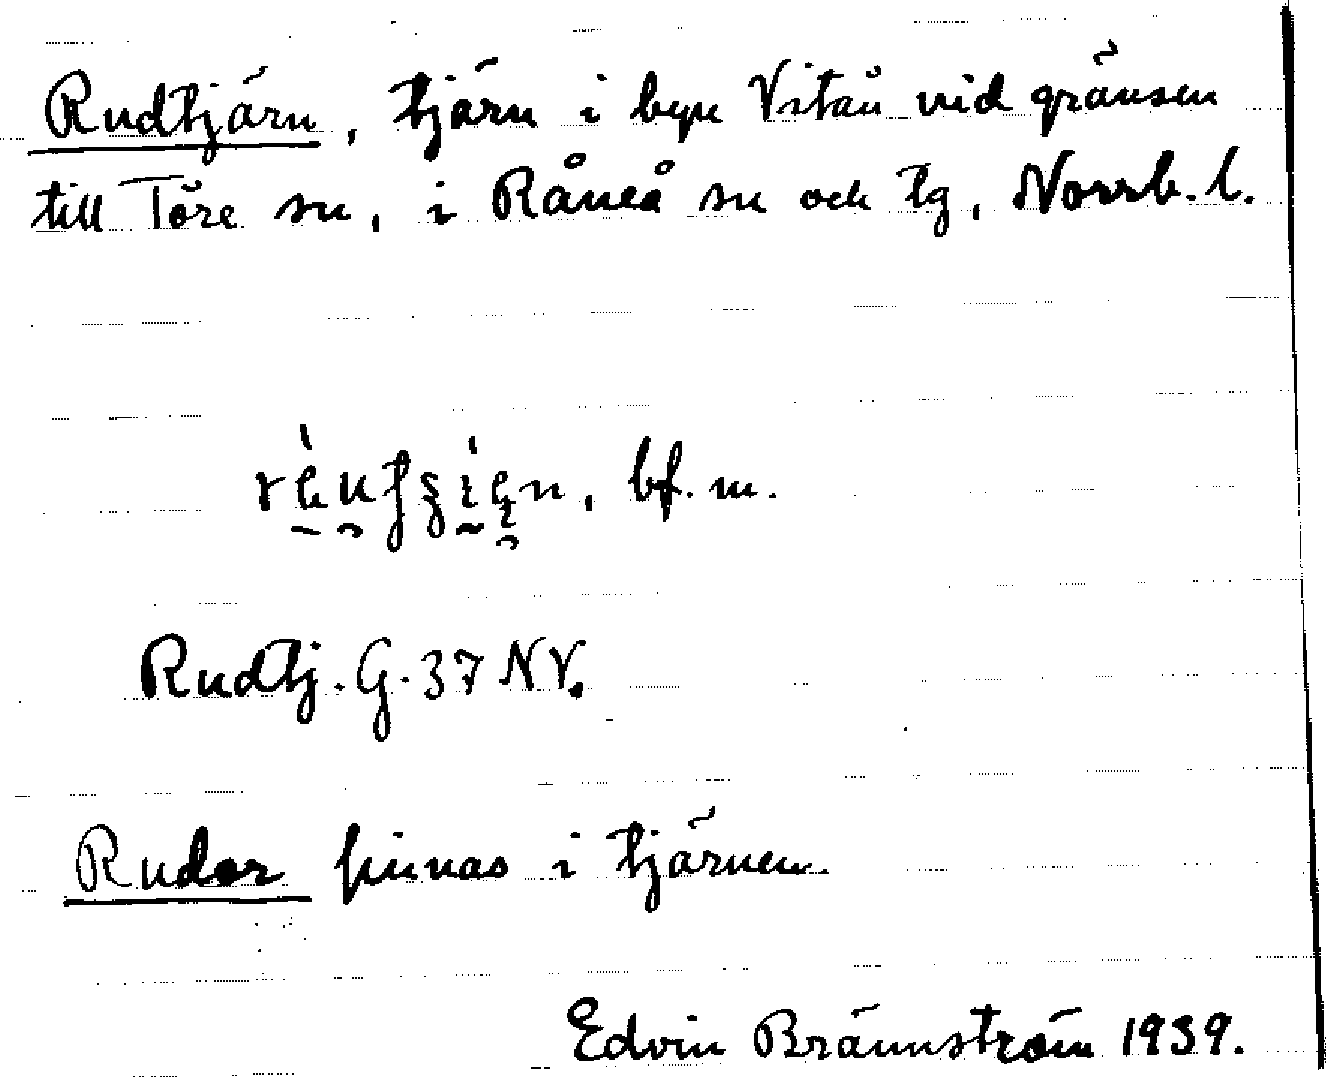 Rudtjärn, tjärn i byn Vitån vid gränsen
till Töre sn, i Råneå sn och tg, Norrb. l.
bf. m.
Rudtj. G. 37 NV.
Rudor finnas i tjärnen.
Edvin Brännström 1939.